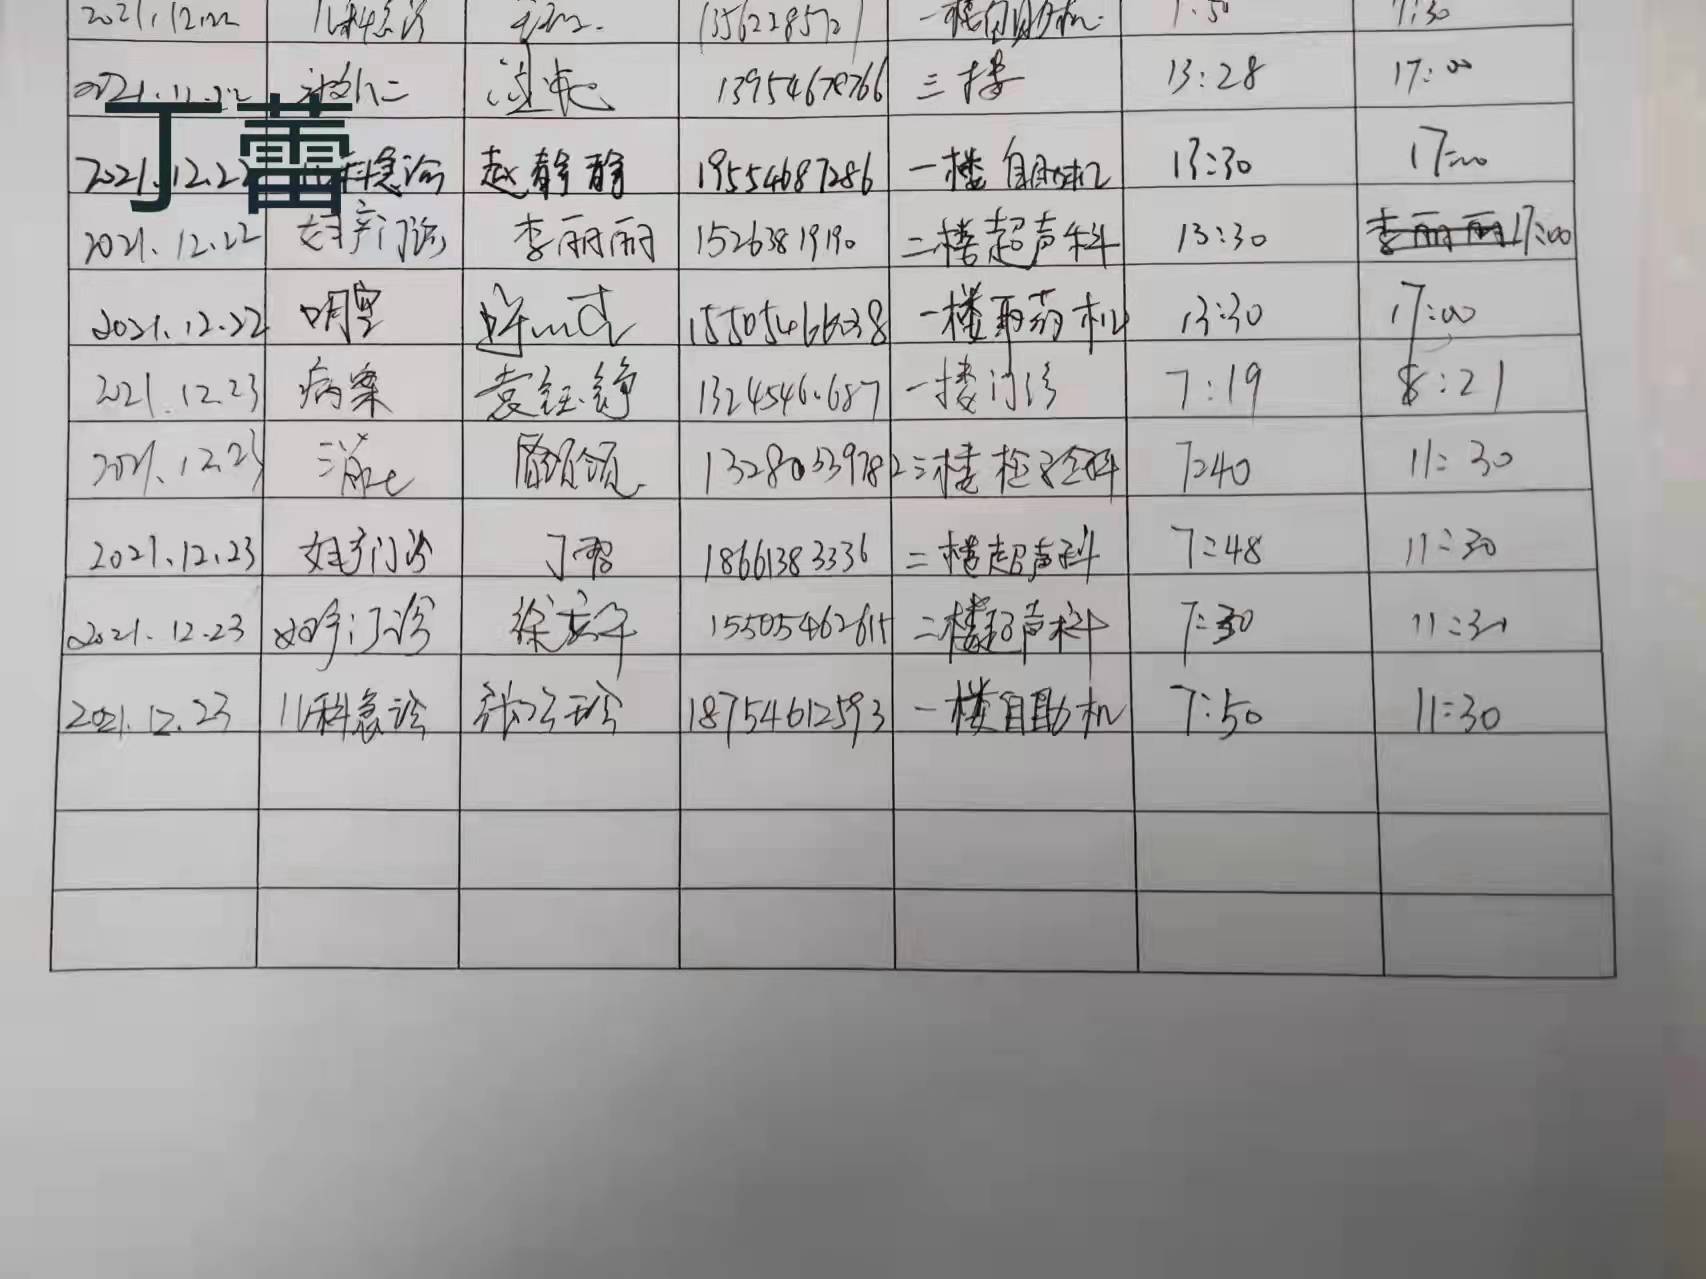 2021.12.22 儿科急诊 1356228572 一楼自助机 7:30
2021.12.22 三楼 13:28 17:00
丁蕾
2021.12.22 儿科急诊 赵静静 19554687286 一楼自助机 13:30 17:00
2021.12.22 妇产门诊 李丽丽 15263819190 二楼超声科 13:30 李丽丽 17:00
2021.12.22 一楼取药机 13:30 17:00
2021.12.23 病案 一楼门诊 7:19 8:21
2021.12.23 13280339782 二楼检验科 7:40 11:30
2021.12.23 妇产门诊 18661383336 二楼超声科 7:48 11:30
2021.12.23 妇产门诊 15505462615 二楼超声科 7:30 11:30
2021.12.23 儿科急诊 18754612593 一楼自助机 7:50 11:30